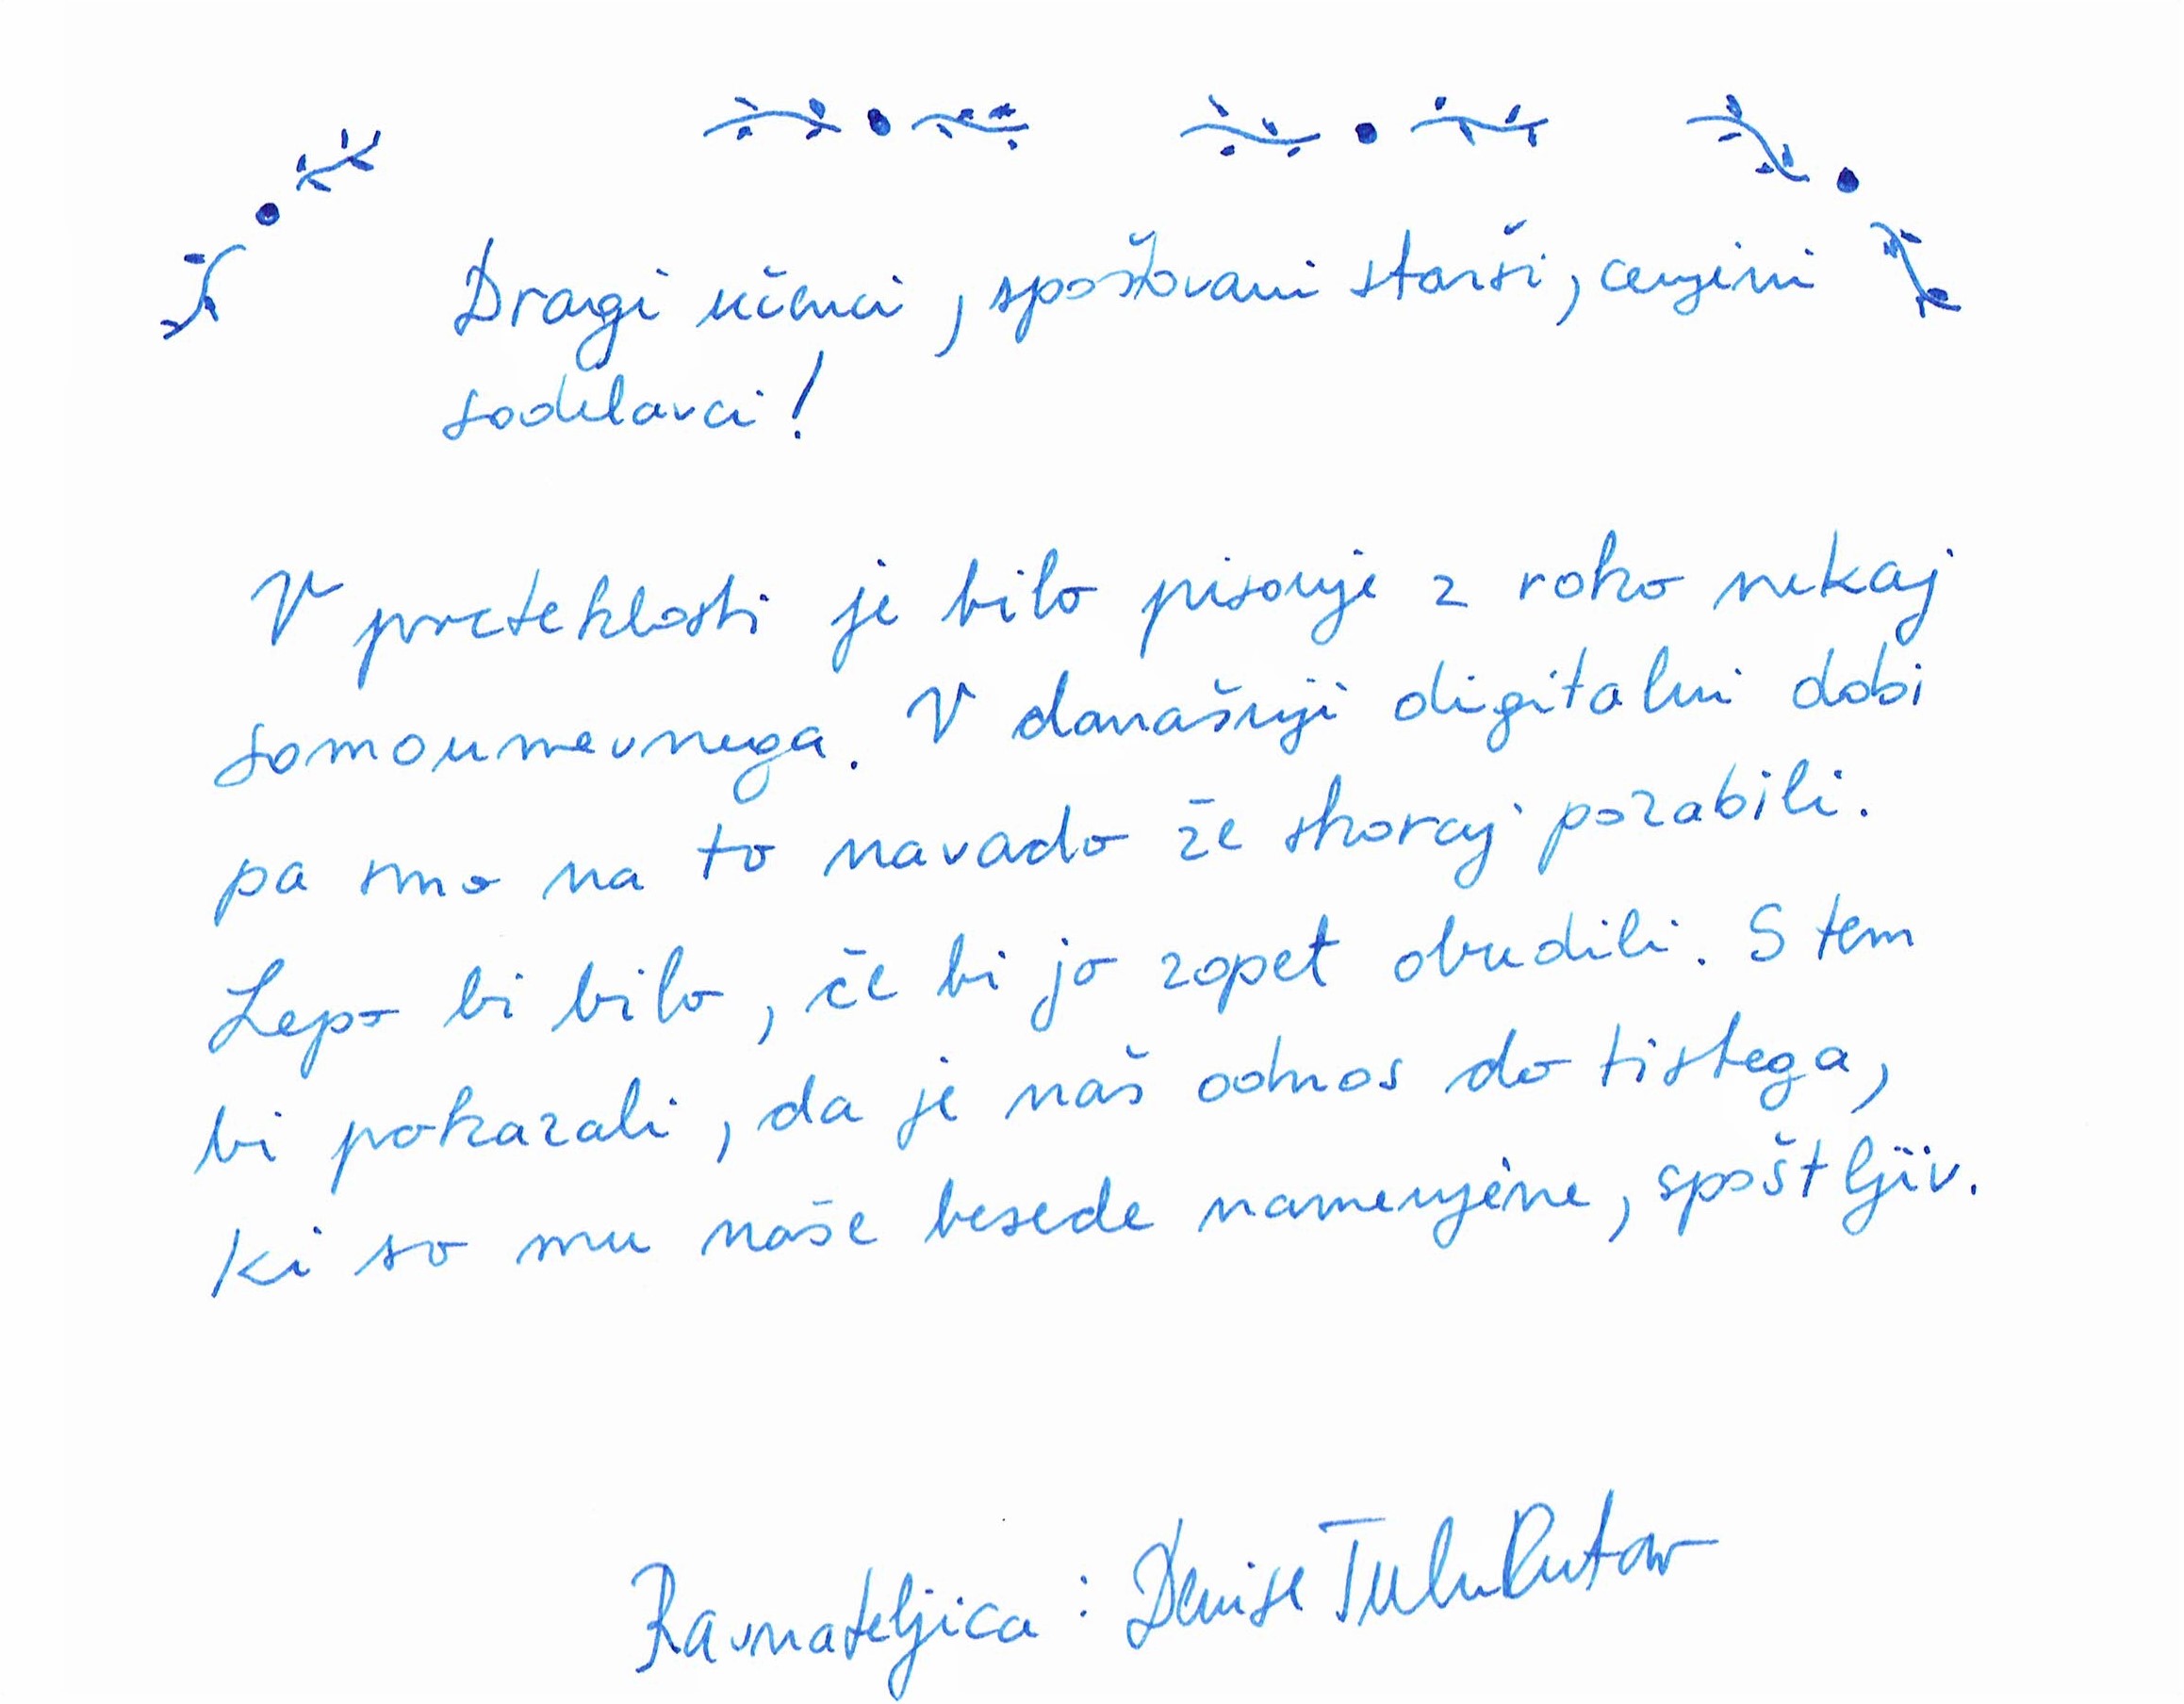 Dragi učenci, spoštovani starši, cenjeni
sodelavci!
V preteklosti je bilo pisanje z roko nekaj
samoumevnega. V današnji digitalni dobi
pa smo na to navado že skoraj pozabili.
Lepo bi bilo, če bi jo zopet obudili. S tem
bi pokazali, da je naš odnos do tistega,
ki so mu naše besede namenjene, spoštljiv.
Ravnateljica: Denise